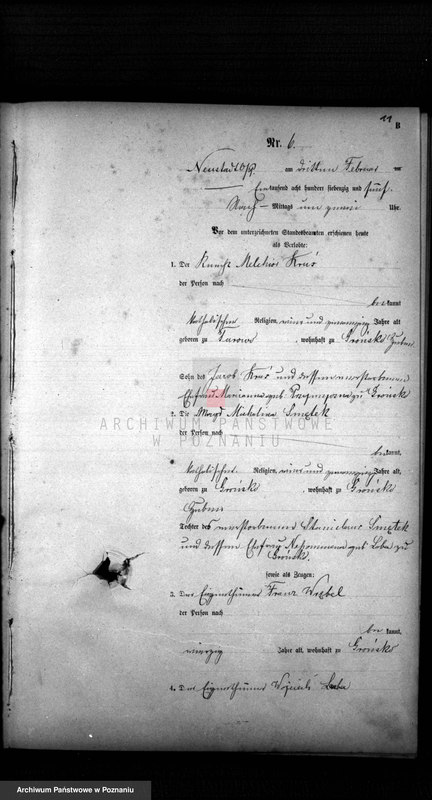 11
B
Nr. 6.
Neustadt b/P. am dritten Februar
Eintausend acht hundert siebenzig und fünf.
Nach Mittags um zwei Uhr.
Vor dem unterzeichneten Standesbeamten erschienen heute
als Verlobte:
1. Der Knecht Melchior Kruś
der Person nach
bekannt
katholischer Religion, eins und zwanzig Jahre alt
geboren zu Turowo, wohnhaft zu Grońsko
Sohn des Jacob Kruś und dessen verstorbenen
Ehefrau Marianna geb. zu Grońsk
2. Die Magd Michalina Smętek
der Person nach
ARCHIWUM PAŃSTWOWE
W POZNANIU
bekannt
katholischer Religion, eins und zwanzig Jahre alt,
geboren zu Gronsko, wohnhaft zu Grońsko
Tochter des verstorbenen Stanislaus Smętek
und dessen Ehefrau Nepomucena geb. Loba zu
Grońsko.
sowie als Zeugen:
3. Der Eigenthümer Franz Wrobel
der Person nach
bekannt,
vierzig Jahre alt, wohnhaft zu Grońsko
4. Der Eigenthümer Wojciech Loba
Archiwum Państwowe w Poznaniu